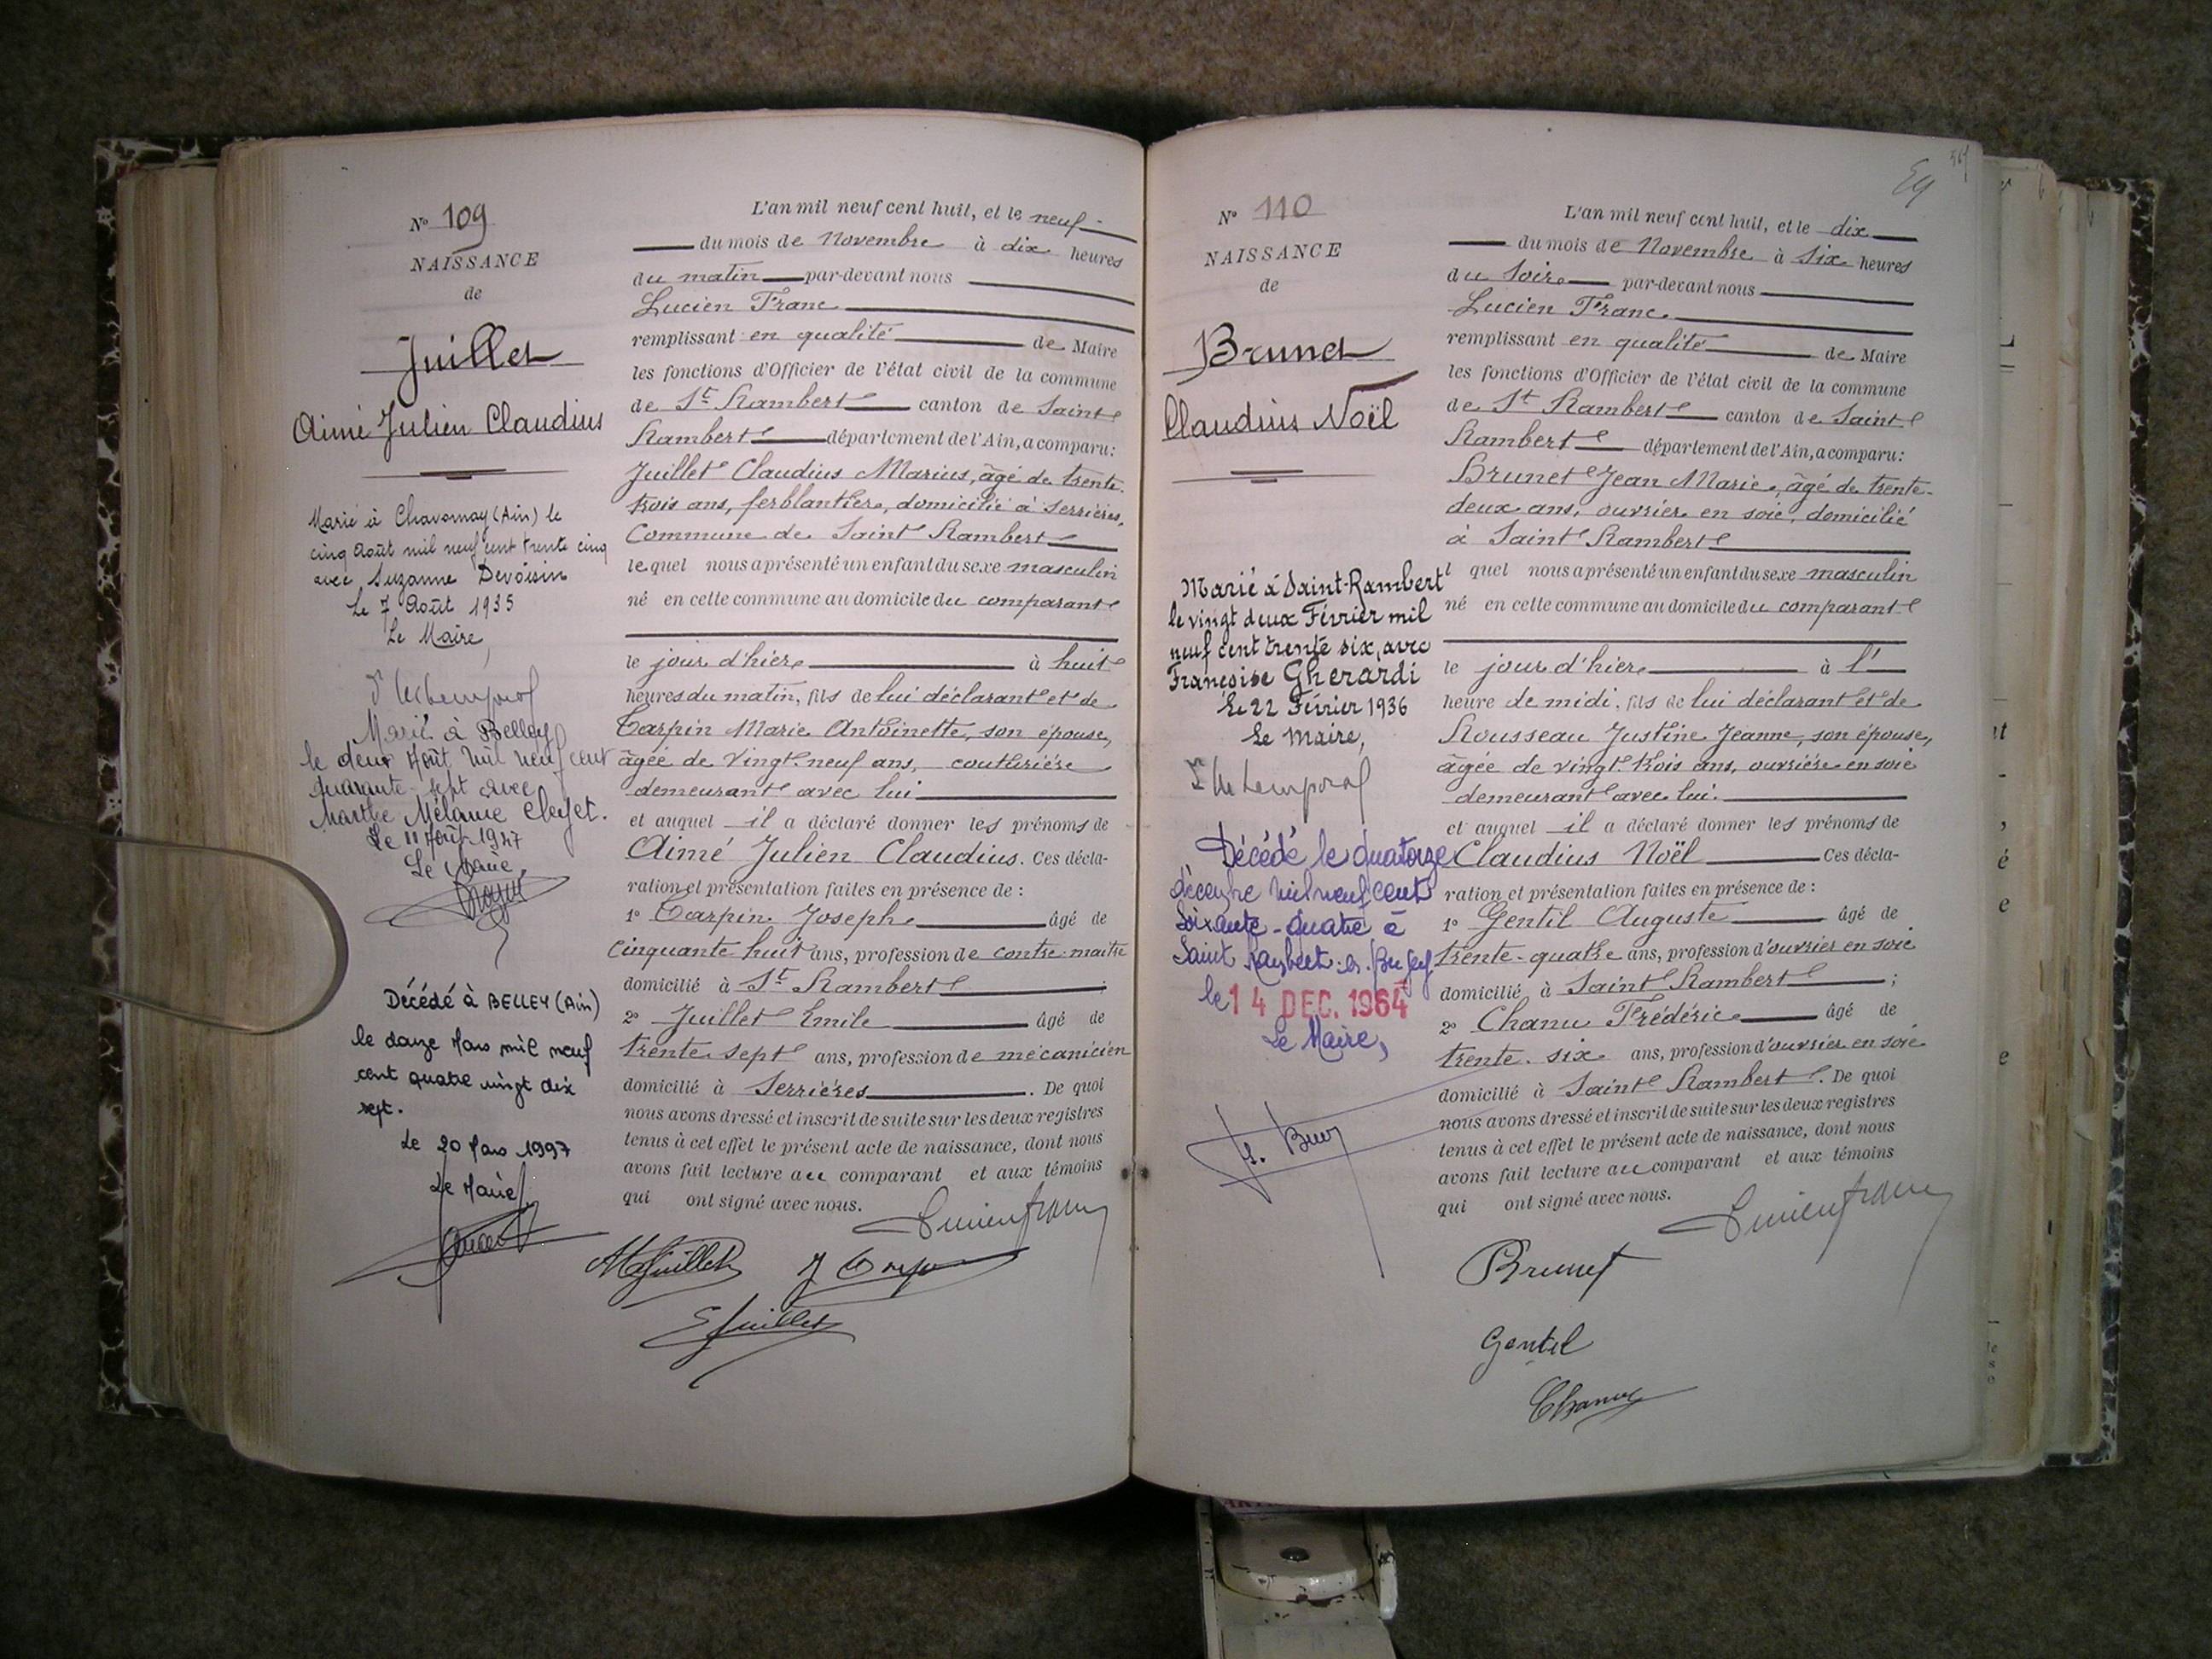 N° 109
NAISSANCE
de
Juillet
Aimé Julien Claudius
Marié à Chavornay (Ain) le
cinq Août mil neuf cent trente cinq
avec Suzanne Devoisin
Le 7 Août 1935
Le Maire,
Marié à Belley
le deux Août mil neuf cent
quarante-sept avec
Marthe Mélanie Cleyet.
Le 11 Août 1947
Le Maire,
Décédé à BELLEY (Ain)
le douze Mars mil neuf
cent quatre vingt dix
sept.
Le 20 Mars 1997
Le Maire
L'an mil neuf cent huit, et le neuf
du mois de Novembre à dix heures
du matin par-devant nous
Lucien Franc
remplissant en qualité de Maire
les fonctions d'Officier de l'état civil de la commune
de St Rambert canton de Saint
Rambert département de l'Ain, a comparu:
Juillet Claudius Marius, âgé de trente-
trois ans, ferblantier, domicilié à Serrières,
Commune de Saint Rambert
lequel nous a présenté un enfant du sexe masculin
né en cette commune au domicile du comparant
le jour d'hier à huit
heures du matin, fils de lui déclarant et de
Carpin Marie Antoinette, son épouse,
âgée de vingt-neuf ans, couturière
demeurant avec lui
et auquel il a déclaré donner les prénoms de
Aimé Julien Claudius. Ces décla-
ration et présentation faites en présence de :
1° Carpin Joseph âgé de
cinquante huit ans, profession de contre-maître
domicilié à St Rambert ;
2° Juillet Emile âgé de
trente sept ans, profession de mécanicien
domicilié à Serrières. De quoi
nous avons dressé et inscrit de suite sur les deux registres
tenus à cet effet le présent acte de naissance, dont nous
avons fait lecture au comparant et aux témoins
qui ont signé avec nous.
Lucien Franc
M Juillet
E Juillet
N° 110
NAISSANCE
de
Brunet
Claudius Noël
Marié à Saint-Rambert
le vingt deux Février mil
neuf cent trente six, avec
Françoise Gherardi
Le 22 Février 1936
Le Maire,
Décédé le quatorze
décembre mil neuf cent
soixante-quatre à
Saint Rambert-en-Bugey
le 14 DEC. 1964
Le Maire,
L'an mil neuf cent huit, et le dix
du mois de Novembre à six heures
du soir par-devant nous
Lucien Franc
remplissant en qualité de Maire
les fonctions d'Officier de l'état civil de la commune
de St Rambert canton de Saint
Rambert département de l'Ain, a comparu:
Brunet Jean Marie, âgé de trente-
deux ans, ouvrier en soie, domicilié
à Saint Rambert
l quel nous a présenté un enfant du sexe masculin
né en cette commune au domicile du comparant
le jour d'hier à l'
heure de midi, fils de lui déclarant et de
Rousseau Justine Jeanne, son épouse,
âgée de vingt-trois ans, ouvrière en soie
demeurant avec lui.
et auquel il a déclaré donner les prénoms de
Claudius Noël Ces décla-
ration et présentation faites en présence de :
1° Gentil Auguste âgé de
trente-quatre ans, profession d'ouvrier en soie
domicilié à Saint Rambert ;
2° Chanu Frédéric âgé de
trente-six ans, profession d'ouvrier en soie
domicilié à Saint Rambert. De quoi
nous avons dressé et inscrit de suite sur les deux registres
tenus à cet effet le présent acte de naissance, dont nous
avons fait lecture au comparant et aux témoins
qui ont signé avec nous.
Lucien Franc
Brunet
Gentil
Chanu